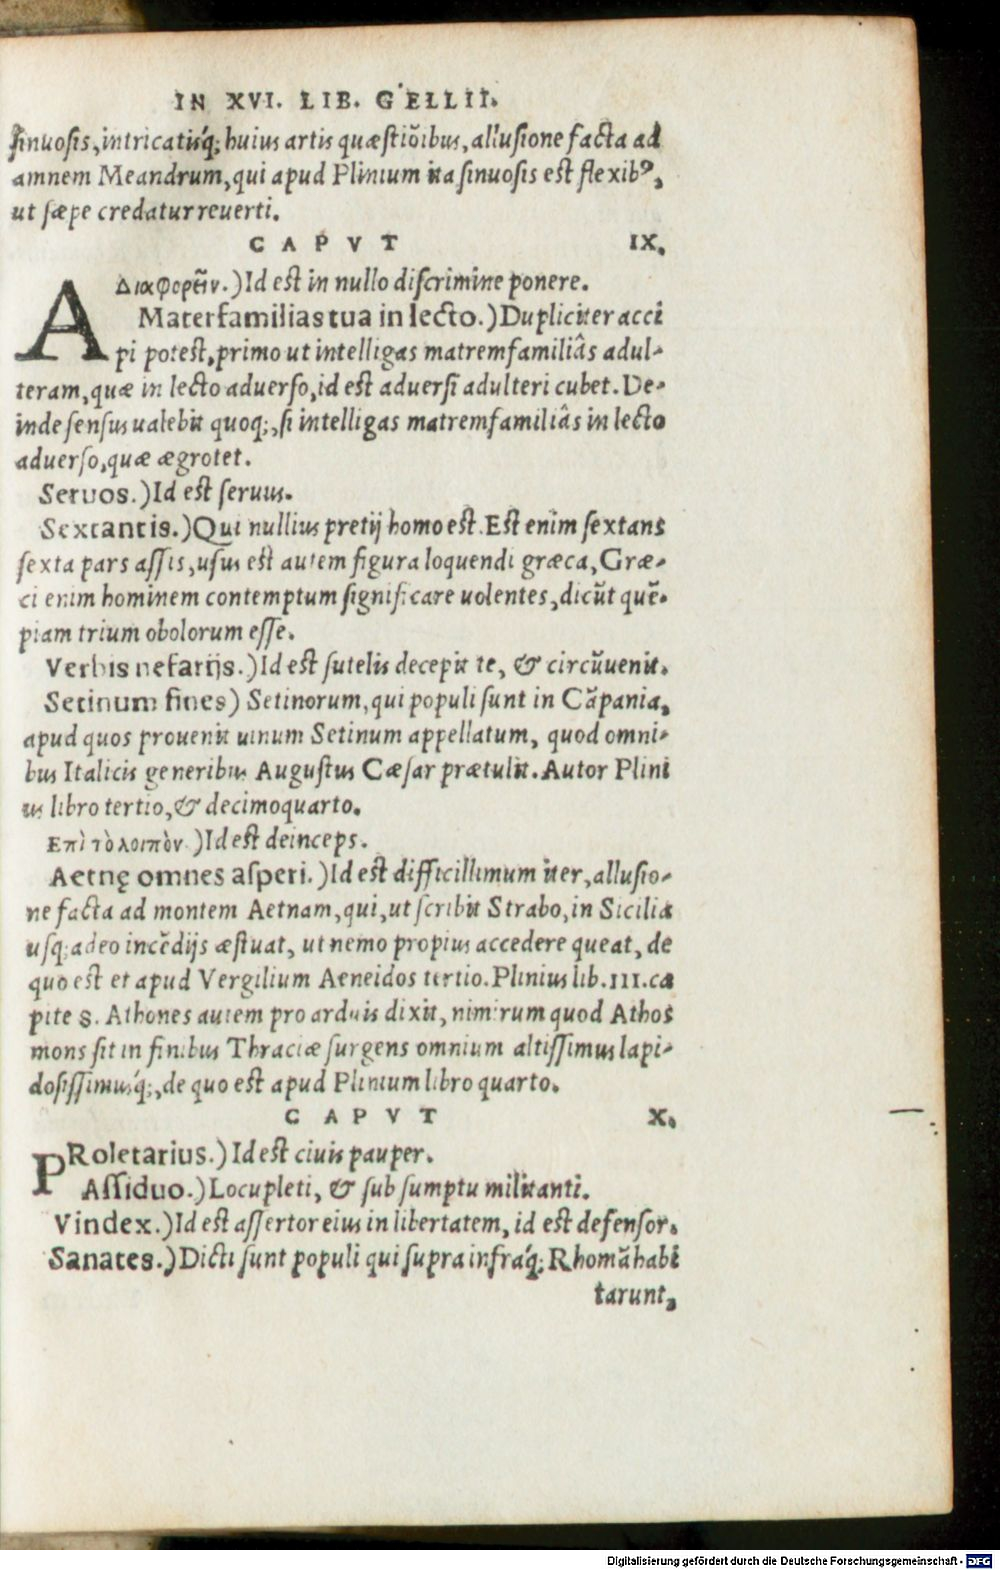 IN XVI. LIB. GELLII.
sinuosis, intricatisq́; huius artis quæstiõibus, allusione facta ad
amnem Meandrum, qui apud Plinium ita sinuosis est flexibꝰ,
ut sæpe credatur reuerti.
CAPVT IX.
AΔιαφορεῖν.) Id est in nullo discrimine ponere.
Materfamilias tua in lecto.) Dupliciter acci
pi potest, primo ut intelligas matremfamiliâs adul-
teram, quæ in lecto aduerso, id est aduersi adulteri cubet. De-
inde sensus ualebit quoq;, si intelligas matremfamiliâs in lecto
aduerso, quæ ægrotet.
Seruos.) Id est seruus.
Sextantis.) Qui nullius pretij homo est. Est enim sextans
sexta pars assis, usus est autem figura loquendi græca, Græ-
ci enim hominem contemptum significare uolentes, dicũt quẽ-
piam trium obolorum esse.
Verbis nefarijs.) Id est sutelis decepit te, & circũuenit.
Setinum fines) Setinorum, qui populi sunt in Cãpania,
apud quos prouenit uinum Setinum appellatum, quod omni-
bus Italicis generibus Augustus Cæsar prætulit. Autor Plini
us libro tertio, & decimoquarto.
Επὶ τὸ λοιπὸν.) Id est deinceps.
Aetnę omnes asperi.) Id est difficillimum iter, allusio-
ne facta ad montem Aetnam, qui, ut scribit Strabo, in Sicilia
usq; adeo incẽdijs æstuat, ut nemo propius accedere queat, de
quo est et apud Vergilium Aeneidos tertio. Plinius lib. III. ca
pite 8. Athones autem pro arduis dixit, nimirum quod Athos
mons sit in finibus Thraciæ surgens omnium altissimus lapi-
dosissimusq́;, de quo est apud Plinium libro quarto.
CAPVT X.
PRoletarius.) Id est ciuis pauper.
Assiduo.) Locupleti, & sub sumptu militanti.
Vindex.) Id est assertor eius in libertatem, id est defensor.
Sanates.) Dicti sunt populi qui supra infraq́; Rhomã habi
tarunt,
Digitalisierung gefördert durch die Deutsche Forschungsgemeinschaft - DFG